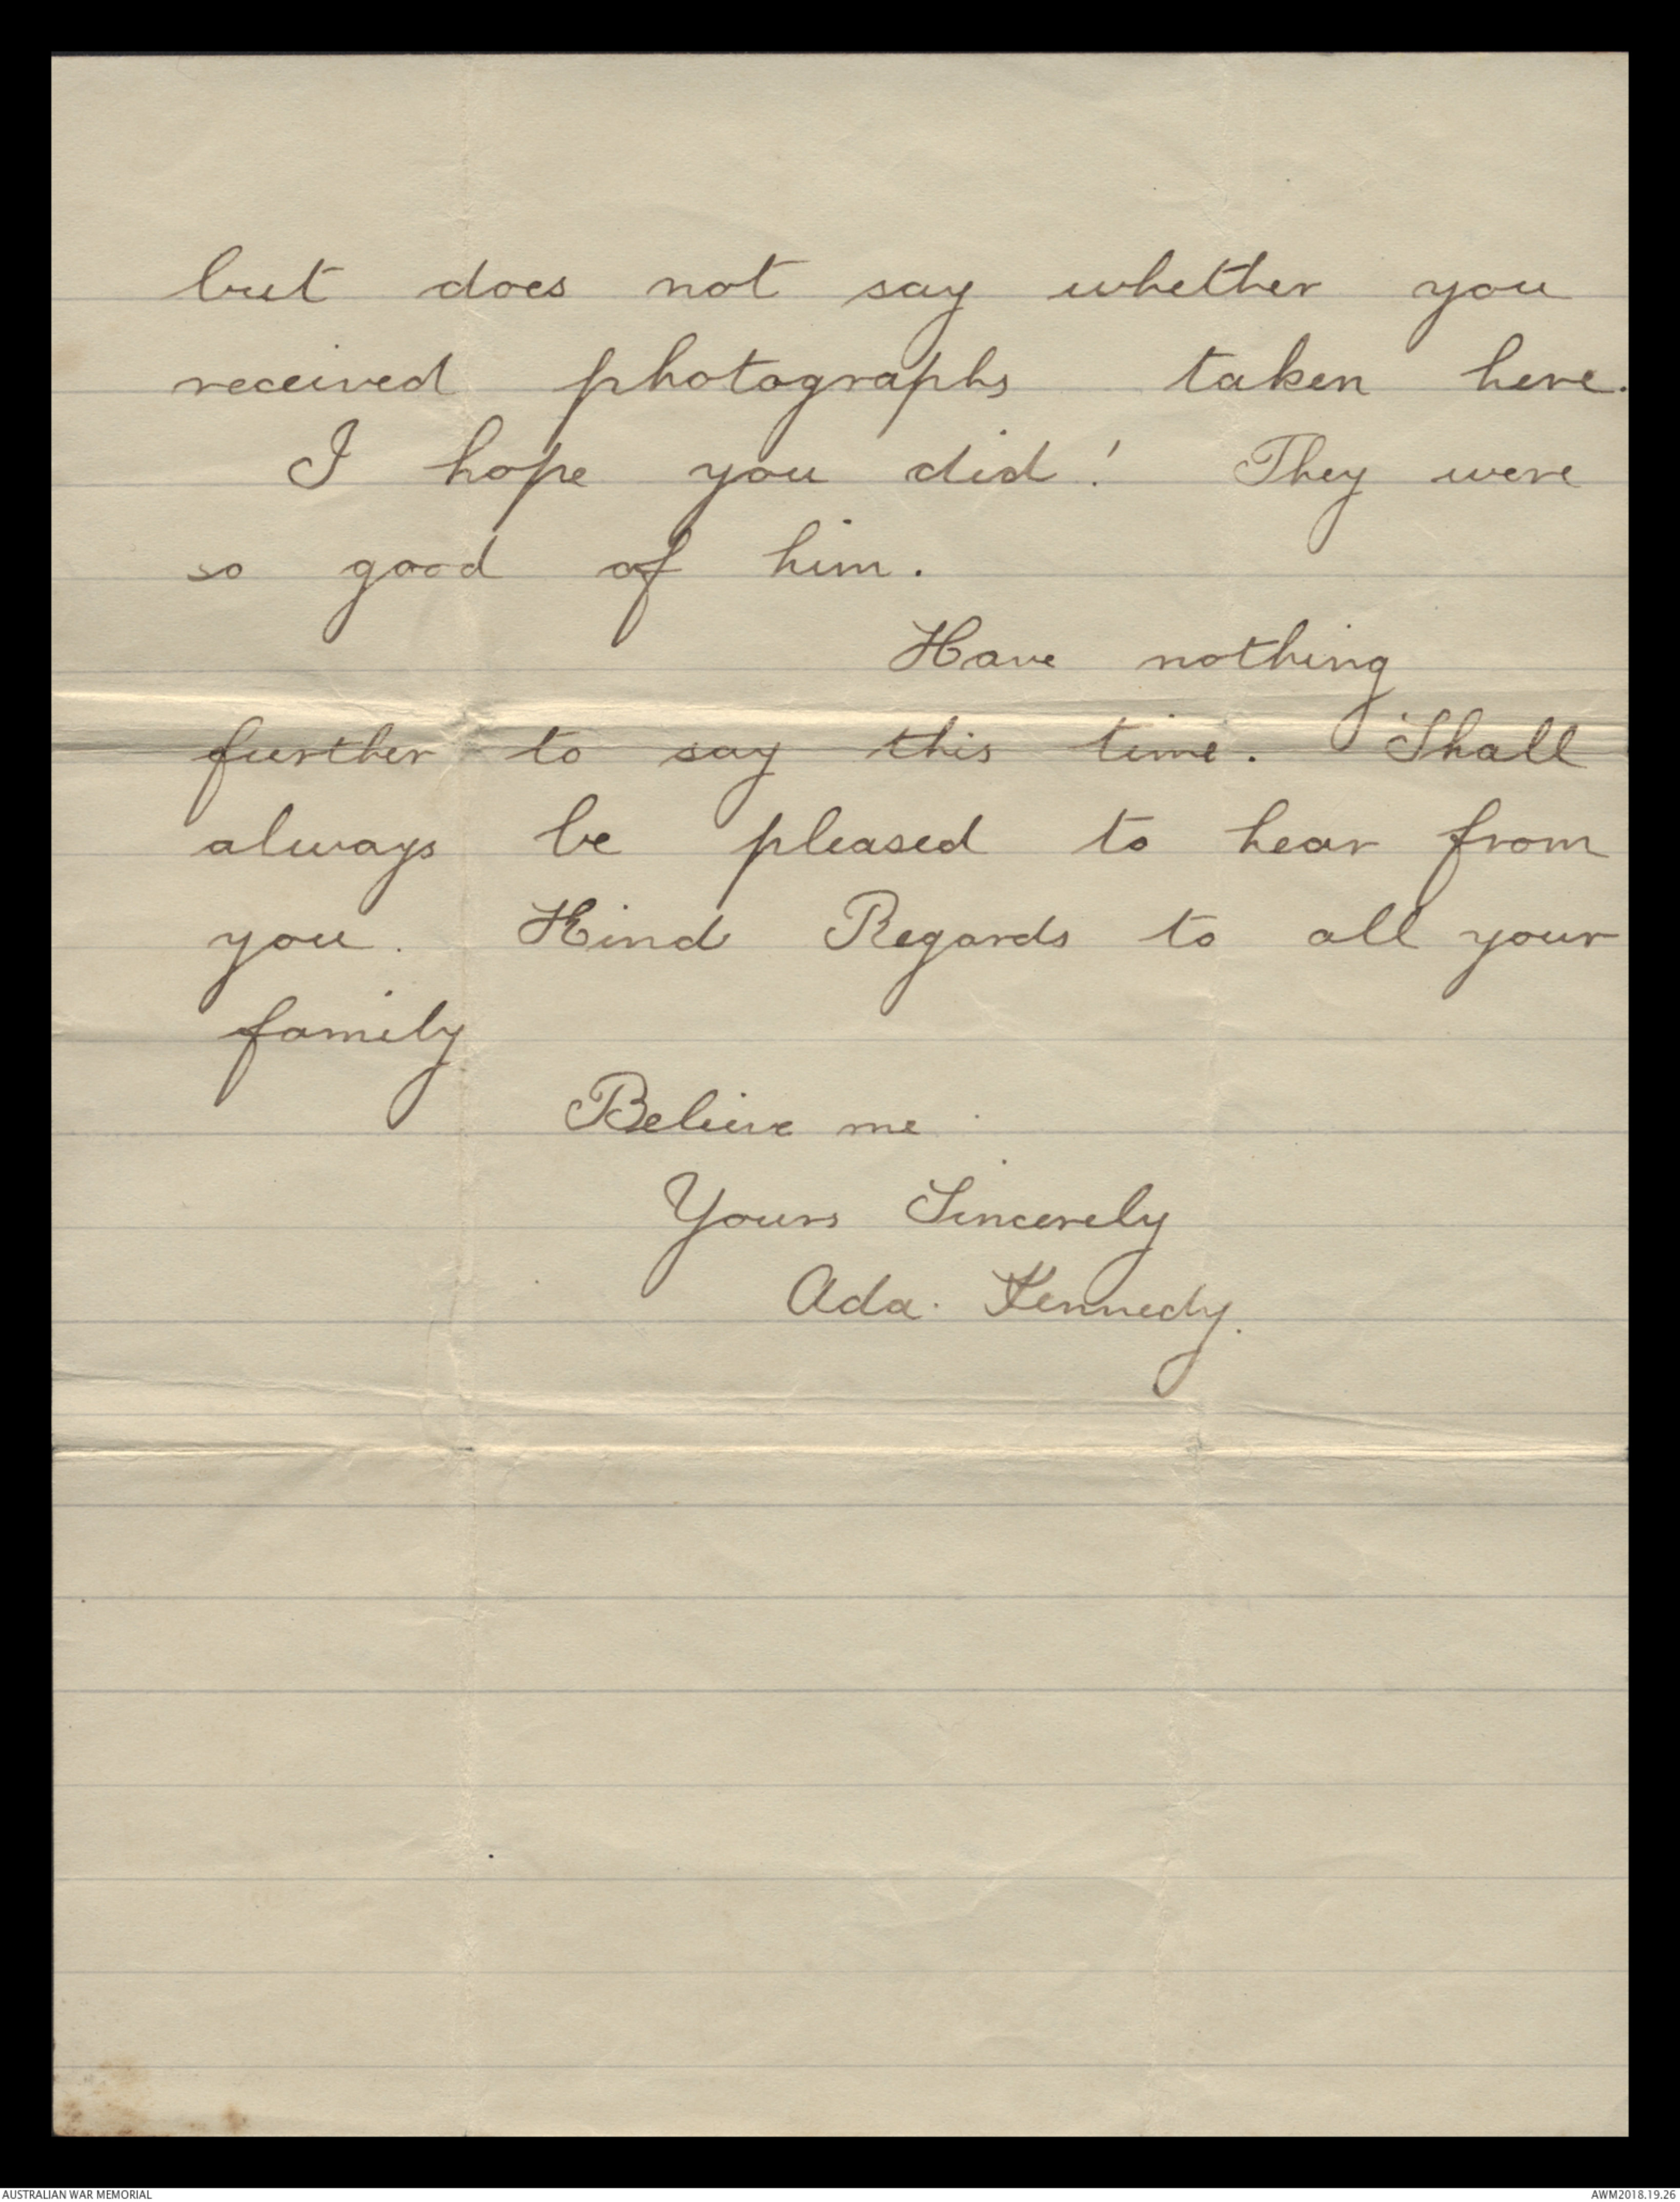 but does not say whether you
received photographs taken here.
I hope you did! They were
so good of him.
Have nothing
further to say this time. Shall
always be pleased to hear from
you. Kind Regards to all your
family
Believe me
Yours Sincerely
Ada. Kennedy.
AUSTRALIAN WAR MEMORIAL
AWM2018.19.26